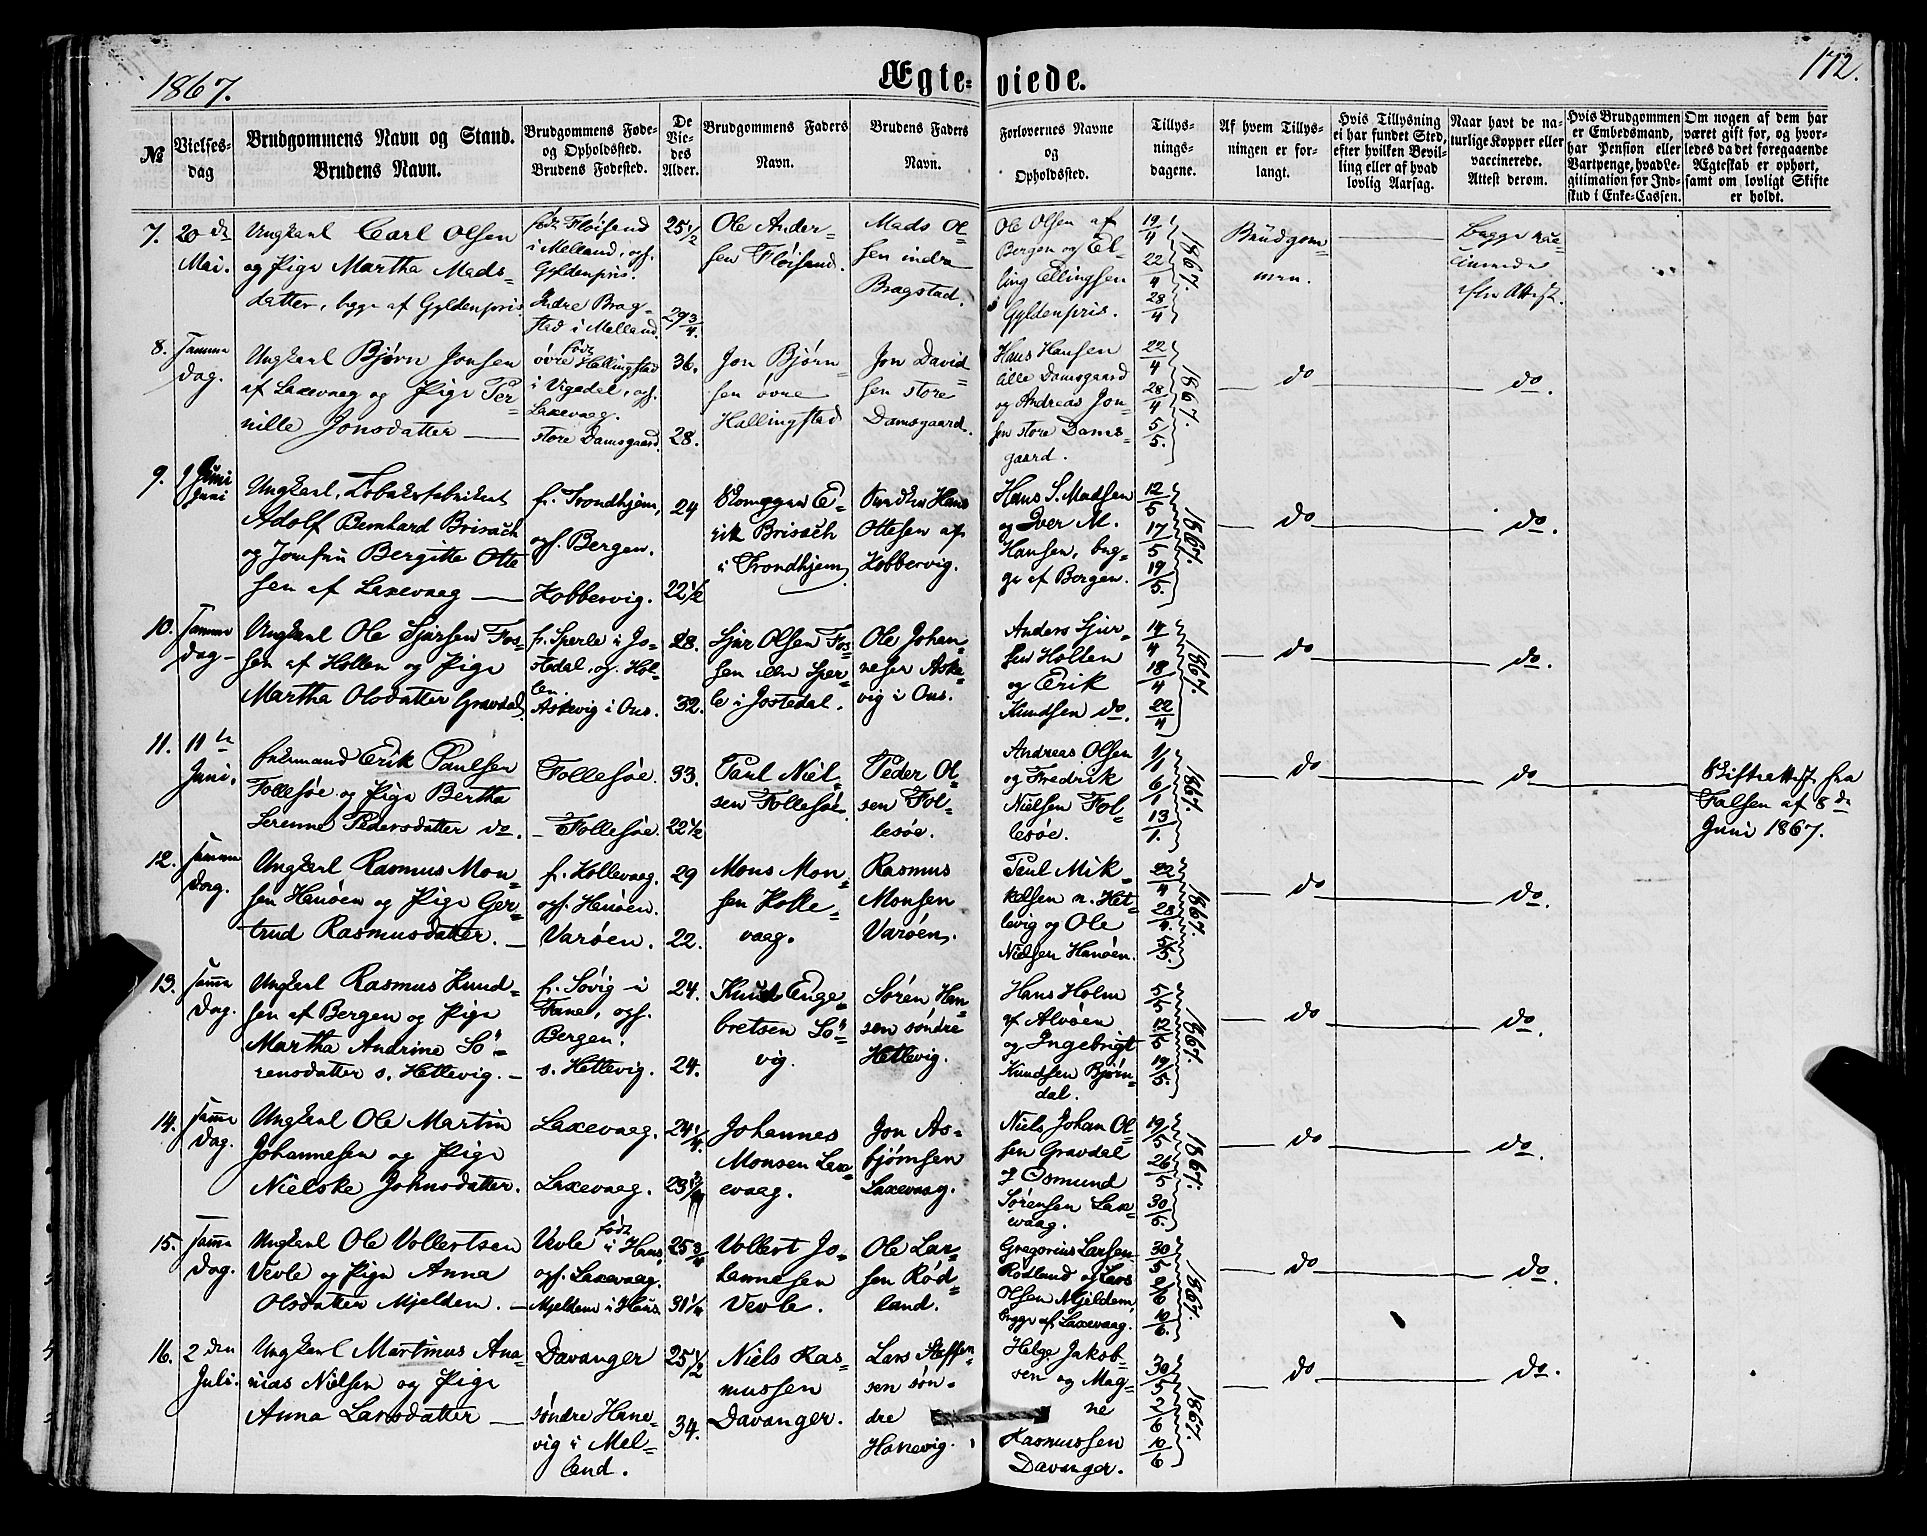 1867.
Ægteviede.
172.
№
Vielsesdag
Brudgommens Navn og Stand.
Brudens Navn.
Brudgommens Føde- og Opholdssted.
Brudens Fødested.
De Viedes Alder.
Brudgommens Faders Navn.
Brudens Faders Navn.
Forlovernes Navne og Opholdssted.
Tillysningsdagene.
Af hvem Tillysningen er forlangt.
Hvis Tillysning ei har fundet Sted, efter hvilken Bevilling eller af hvad lovlig Aarsag.
Naar havt de naturlige Kopper eller vaccinerede. Attest derom.
Hvis Brudgommen er Embedsmand, har Pension eller Vartpenge, hvad Legitimation for Indskud i Enke-Cassen.
Om nogen af dem har været gift før, og hvorledes da det foregaaende Ægteskab er ophørt, samt om lovligt Skifte er holdt.
7.
20 de Mai.
Ungkarl Carl Olsen
og Pige Martha Mads-
datter, begge af Gyldenpris
født Fløisand
i Melland, opf.
Gyldenpris.
Indre Brag-
stad i Melland.
25 1/2
29 3/4.
Ole Ander-
sen Fløisand.
Mads Ol-
sen indre
Bragstad.
Ole Olsen af
Bergen og El-
ling Ellingsen
Gyldenpris.
19/4 22/4 28/4 1867.
Brudgom-
men.
Begge vac-
cinerede
efter Attest.
8.
samme
Dag.
Ungkarl Bjørn Jonsen
af Laxevaag og Pige Per-
nille Jonsdatter
født
øvre Hallingstad
i Vigedal, opf.
Laxevaag.
store Damsgaard.
36.
28.
Jon Bjørn-
sen øvre
Hallingstad
Jon David-
sen store
Damsgaard.
Hans Hansen
lille Damsgaard
og Andreas Jon-
sen store Dams-
gaard.
22/4 28/4 5/5. 1867.
do
do.
9.
9 Juni
Juni
Ungkarl, Tobaksfabrikant
Adolf Bernhard Brisach
og Jomfru Bergitte Otte
sen af Laxevaag
f. Trondhjem,
opf. Bergen.
Kobbervig.
24
22 1/2
E-
rik Brisach
i Trondhjem
Hans
Ottesen af
Kobbervig.
Hans S. Madsen
og Iver M.
Hansen, beg-
ge af Bergen.
12/5 17/5 19/5. 1867.
do
do.
10.
samme
Dag
Ungkarl Ole Sjursen Fos-
sen af Hollen og Pige
Martha Olsdatter Gravdal
f. Sperle i Jo-
stedal, og. Hol-
len.
Askevig i Ous.
28.
32.
Sjur Olsen Fos-
sen eller Sper-
le i Jostedal.
Ole Johan-
nesen Aske-
vig i Ous.
Anders Sjur-
sen Hollen
og Erik
Knudsen do.
14/4 18/4 22/4 1867.
do
do.
11.
11te
Juni.
Enkemand Erik Paulsen
Follesøe og Pige Bertha
Serenne Pedersdatter do.
Follesøe.
Follesøe.
33.
22 1/2
Paul Niel-
sen Follesøe
Peder Ol-
sen Fol-
lesøe.
Andreas Olsen
og Fredrik
Nielsen Fol-
lesøe.
1/1 6/1 13/1. 1867.
do
do
Skifteattest fra
Falsen af 8 de
Juni 1867.
12.
samme
Dag.
Ungkarl Rasmus Mon-
sen Hanøen og Pige Ger-
trud Rasmusdatter.
f. Kollevaag.
opf. Hanøen.
Varøen.
29
22.
Mons Mon-
sen Kolle-
vaag.
Rasmus
Monsen
Varøen.
Paul Mik-
kelsen n. Het-
levig og Ole
Nielsen Hanøen.
22/4 28/4. 5/5. 1867.
do
do.
13.
samme
Dag.
Ungkarl Rasmus Knud-
sen af Bergen og Pige
Martha Andrine Sö-
rensdatter s. Hetlevig.
f. Søvig i
Fane, opf.
Bergen.
s. Hetlevig.
24.
24.
Knud Enge-
bretsen Sö-
vig.
Sören Han-
sen søndre
Hetlevig.
Hans Holm
af Alvøen
og Ingebrigt
Knudsen Bjørn-
dal.
5/5 12/5 19/5. 1867.
do
do.
14.
samme
Dag.
Ungkarl Ole Martin
Johannesen og Pige
Nielske Johnsdatter.
Laxevaag.
Laxevaag.
24 1/4
23 3/4
Johannes
Monsen Lax-
evaag.
Jon As-
bjørnsen
Laxevaag.
Niels Johan Ol-
sen Gravdal
og Osmund
Sørensen Lax-
evaag.
19/5 26/5 30/5. 1867.
do
do.
15.
samme
Dag.
Ungkarl Ole Vollertsen
Vevle og Pige Anna
Olsdatter Mjelden.
født
Vevle i Haus
opf. Laxevaag.
Mjeldem i Haus.
25 3/4
31 1/4
Vollert Jo-
hannesen
Vevle.
Ole Lar-
sen Rød-
land.
Gregorius Larsen
Rødland og Lars
Olsen Mjeldem,
begge af Laxevaag.
30/5 2/6 10/6. 1867.
do
do.
16.
2 den
Juli.
Ungkarl Martinus Ana-
nias Nielsen og Pige
Anna Larsdatter
Davanger
søndre Hane-
vig i Mel-
land.
25 1/2
34.
Niels Ras-
mussen
Davanger.
Lars Steffen-
sen søn-
dre
Hanevig.
Helge Jakob-
sen og Mag-
ne
Rasmussen
Davanger.
30/5 2/6 10/6 1867.
do
do.